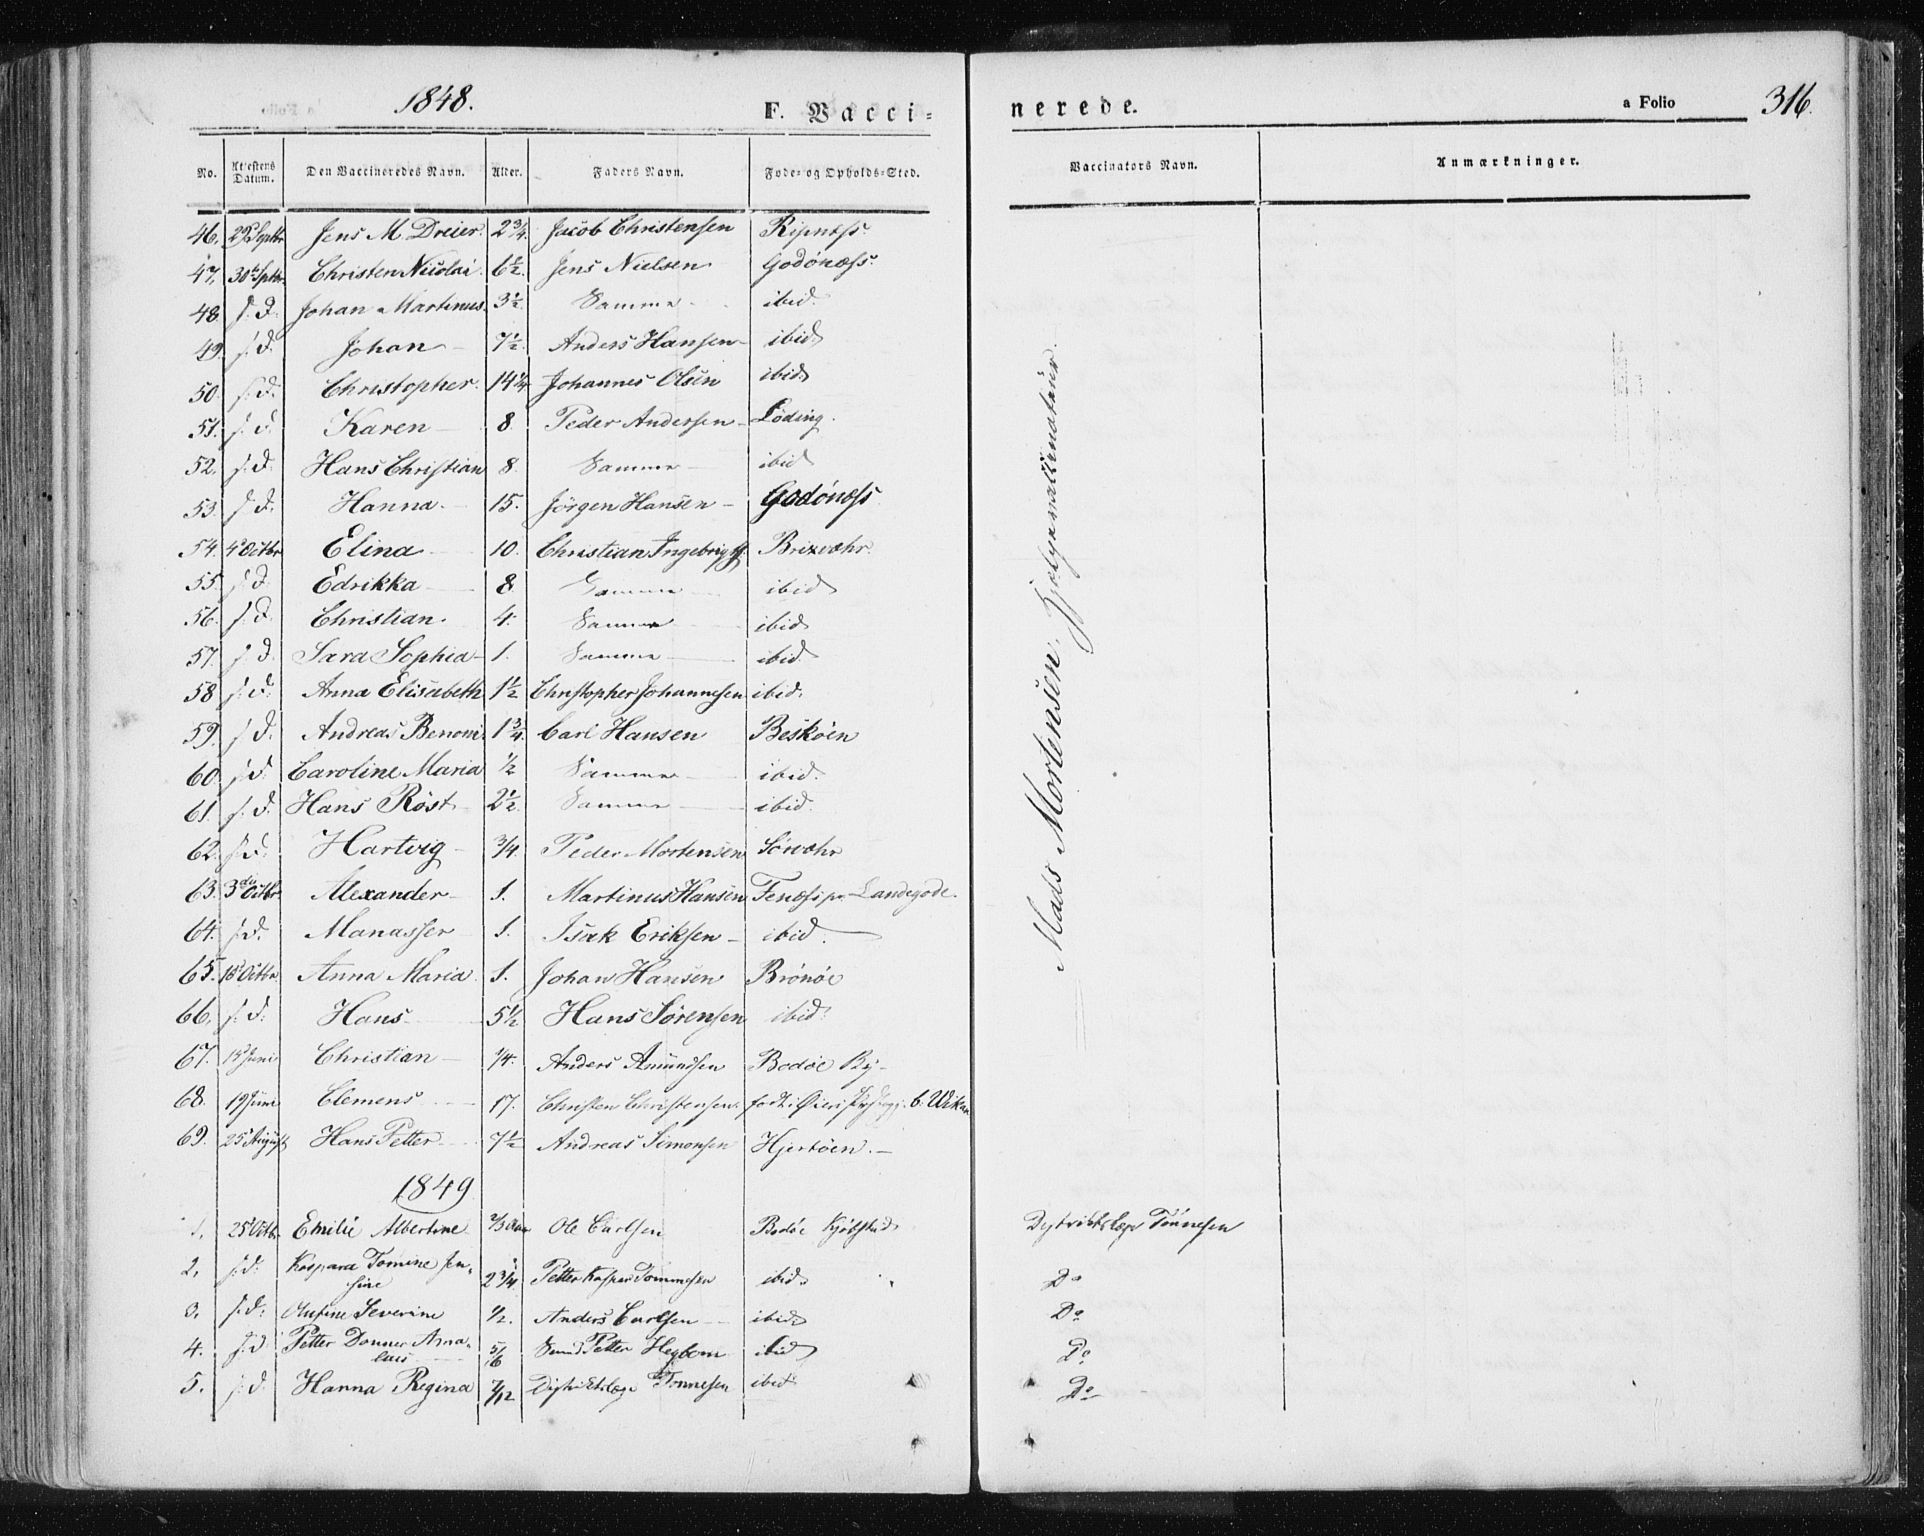 1848.
F. Vacci=
nerede.
a Folio 316.
No. Attestens Datum. Den Vaccineredes Navn. Alder. Faders Navn. Føde= og Opholds=Sted. Vaccinators Navn. Anmærkninger.
46. 29 Septbr Jens M. Dreier. 2 3/4. Jacob Christensen Ripnæss.
47. 30te Sptbr. Christen Nicolai. 6 1/2. Jens Nielsen Godönæss.
48. s. D. Johan Martinus. 3 1/2. Samme ibid.
49. s. d. Johan 7 1/2. Anders Hansen ibid.
50. s. d. Christopher. 14 1/4. Johannes Olsen ibid.
51. s. d. Karen 8. Peder Andersen Löding.
52. s. d. Hans Christian 8. Samme ibid
53. s. d. Hanna. 15. Jörgen Hansen Godönæss
54. 4de Octbr Elina 10. Christian Ingebrigts. Brixvæhr.
55. s. d. Edrikka 8. Samme ibid
56. s. d. Christian. 4. Samme ibid
57. s. d. Sara Sophia 1. Samme ibid.
58 s. d. Anna Elisabeth 1 1/2 Christopher Johannesen ibid.
59. s. d. Andreas Benoni. 1 3/4. Carl Hansen Besköen
60. s. d. Caroline Maria 1/2 Samme ibid.
61. s. d. Hans Röst 2 1/2. Samme ibid.
62. s. d. Hartvig 3/4. Peder Mortensen Sörvæhr
63. 3die Octbr. Alexander 1. Martinus Hansen Fenæss pr. Landegode.
64. s. d. Manasser 1. Isak Eriksen ibid.
65. 18 Octbr Anna Maria. 1. Johan Hansen Brönöe
66. s. d. Hans 5 1/2 Hans Sörensen ibid.
67. 15 Juni Christian 1/4. Anders Amundsen Bodöe By
68. 19 Juni Clemens 17. Christen Christensen. født i Øieri Præstegj. b. Wikan
69. 25 August Hans Petter 7 1/2 Andreas Simonsen Hjertöen.
Mads Mortensen, Hjelpevaktsinateur.
1849
1. 25 Octbr. Emilie Albertine 2/3 Aar Ole Carlsen Bodöe Kjöbstad Distriktslæge Tönnesen
2. s. d. Kaspara Tomine Jen=
sine 2 3/4 Petter Kasper Tommesen ibid. Do
3. s. d. Olufine Severine 1/2. Anders Carlsen ibid. Do
4. s. d. Petter Donner Ama=
lius 5/6 Petter Hegbom ibid Do
5. s. d. Hanna Regina 7/12 Distriktslæge Tönnesen ibid Do